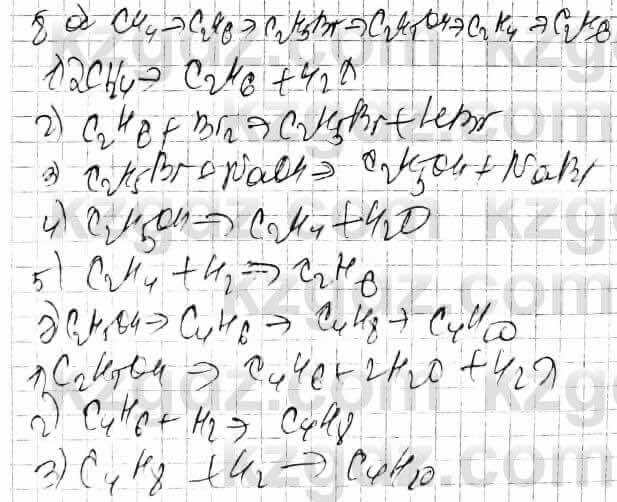 8 a) CH4 → C2H6 → C2H5Br → C2H5OH → C2H4 → C2H6
1) 2CH4 → C2H6 + H2↑
2) C2H6 + Br2 → C2H5Br + HBr
3) C2H5Br + NaOH → C2H5OH + NaBr
4) C2H5OH → C2H4 + H2O
5) C2H4 + H2 → C2H6
C2H5OH → C4H6 → C4H8 → C4H10
1) C2H5OH → C4H6 + 2H2O + H2↑
2) C4H6 + H2 → C4H8
3) C4H8 + H2 → C4H10
kzgdz.com